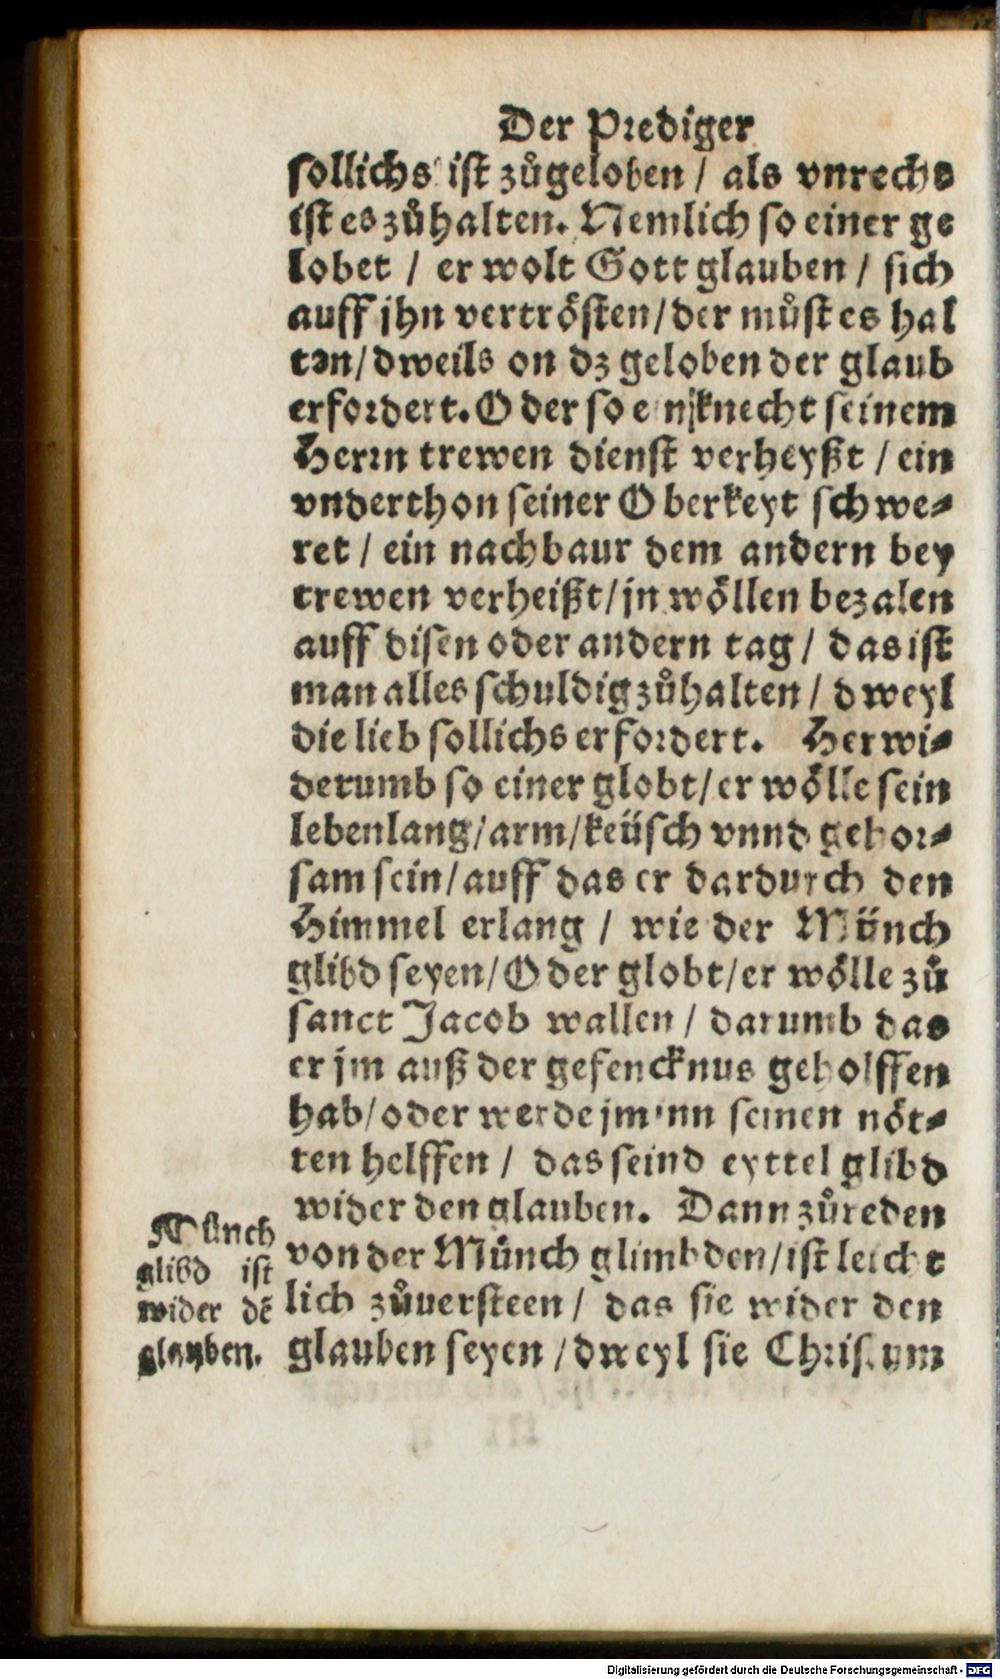 Der Prediger
sollichs ist zůgeloben / als vnrechs
ist es zůhalten. Nemlich so einer ge
lobet / er wolt Gott glauben / sich
auff jhn vertrösten / der můst es hal
ten / dweils on dz geloben der glaub
erfordert. Oder so ein knecht seinem
Herrn trewen dienst verheyßt / ein
vnderthon seiner Oberkeyt schwe⸗
ret / ein nachbaur dem andern bey
trewen verheißt / jn wöllen bezalen
auff disen oder andern tag / das ist
man alles schuldig zůhalten / dweyl
die lieb sollichs erfordert. Herwi⸗
derumb so einer globt / er wölle sein
lebenlang / arm / keüsch vnnd gehor⸗
sam sein / auff das er dardurch den
Himmel erlang / wie der Münch
glibd seyen / Oder globt / er wölle zů
sanct Jacob wallen / darumb das
er jm auß der gefencknus geholffen
hab / oder werde jm inn seinen nöt⸗
ten helffen / das seind eyttel glibd
wider den glauben. Dann zůreden
von der Münch glimbden / ist leicht
lich zůuersteen / das sie wider den
glauben seyen / dweyl sie Christum
Münch
glibd ist
wider dē
glauben.
Digitalisierung gefördert durch die Deutsche Forschungsgemeinschaft - DFG